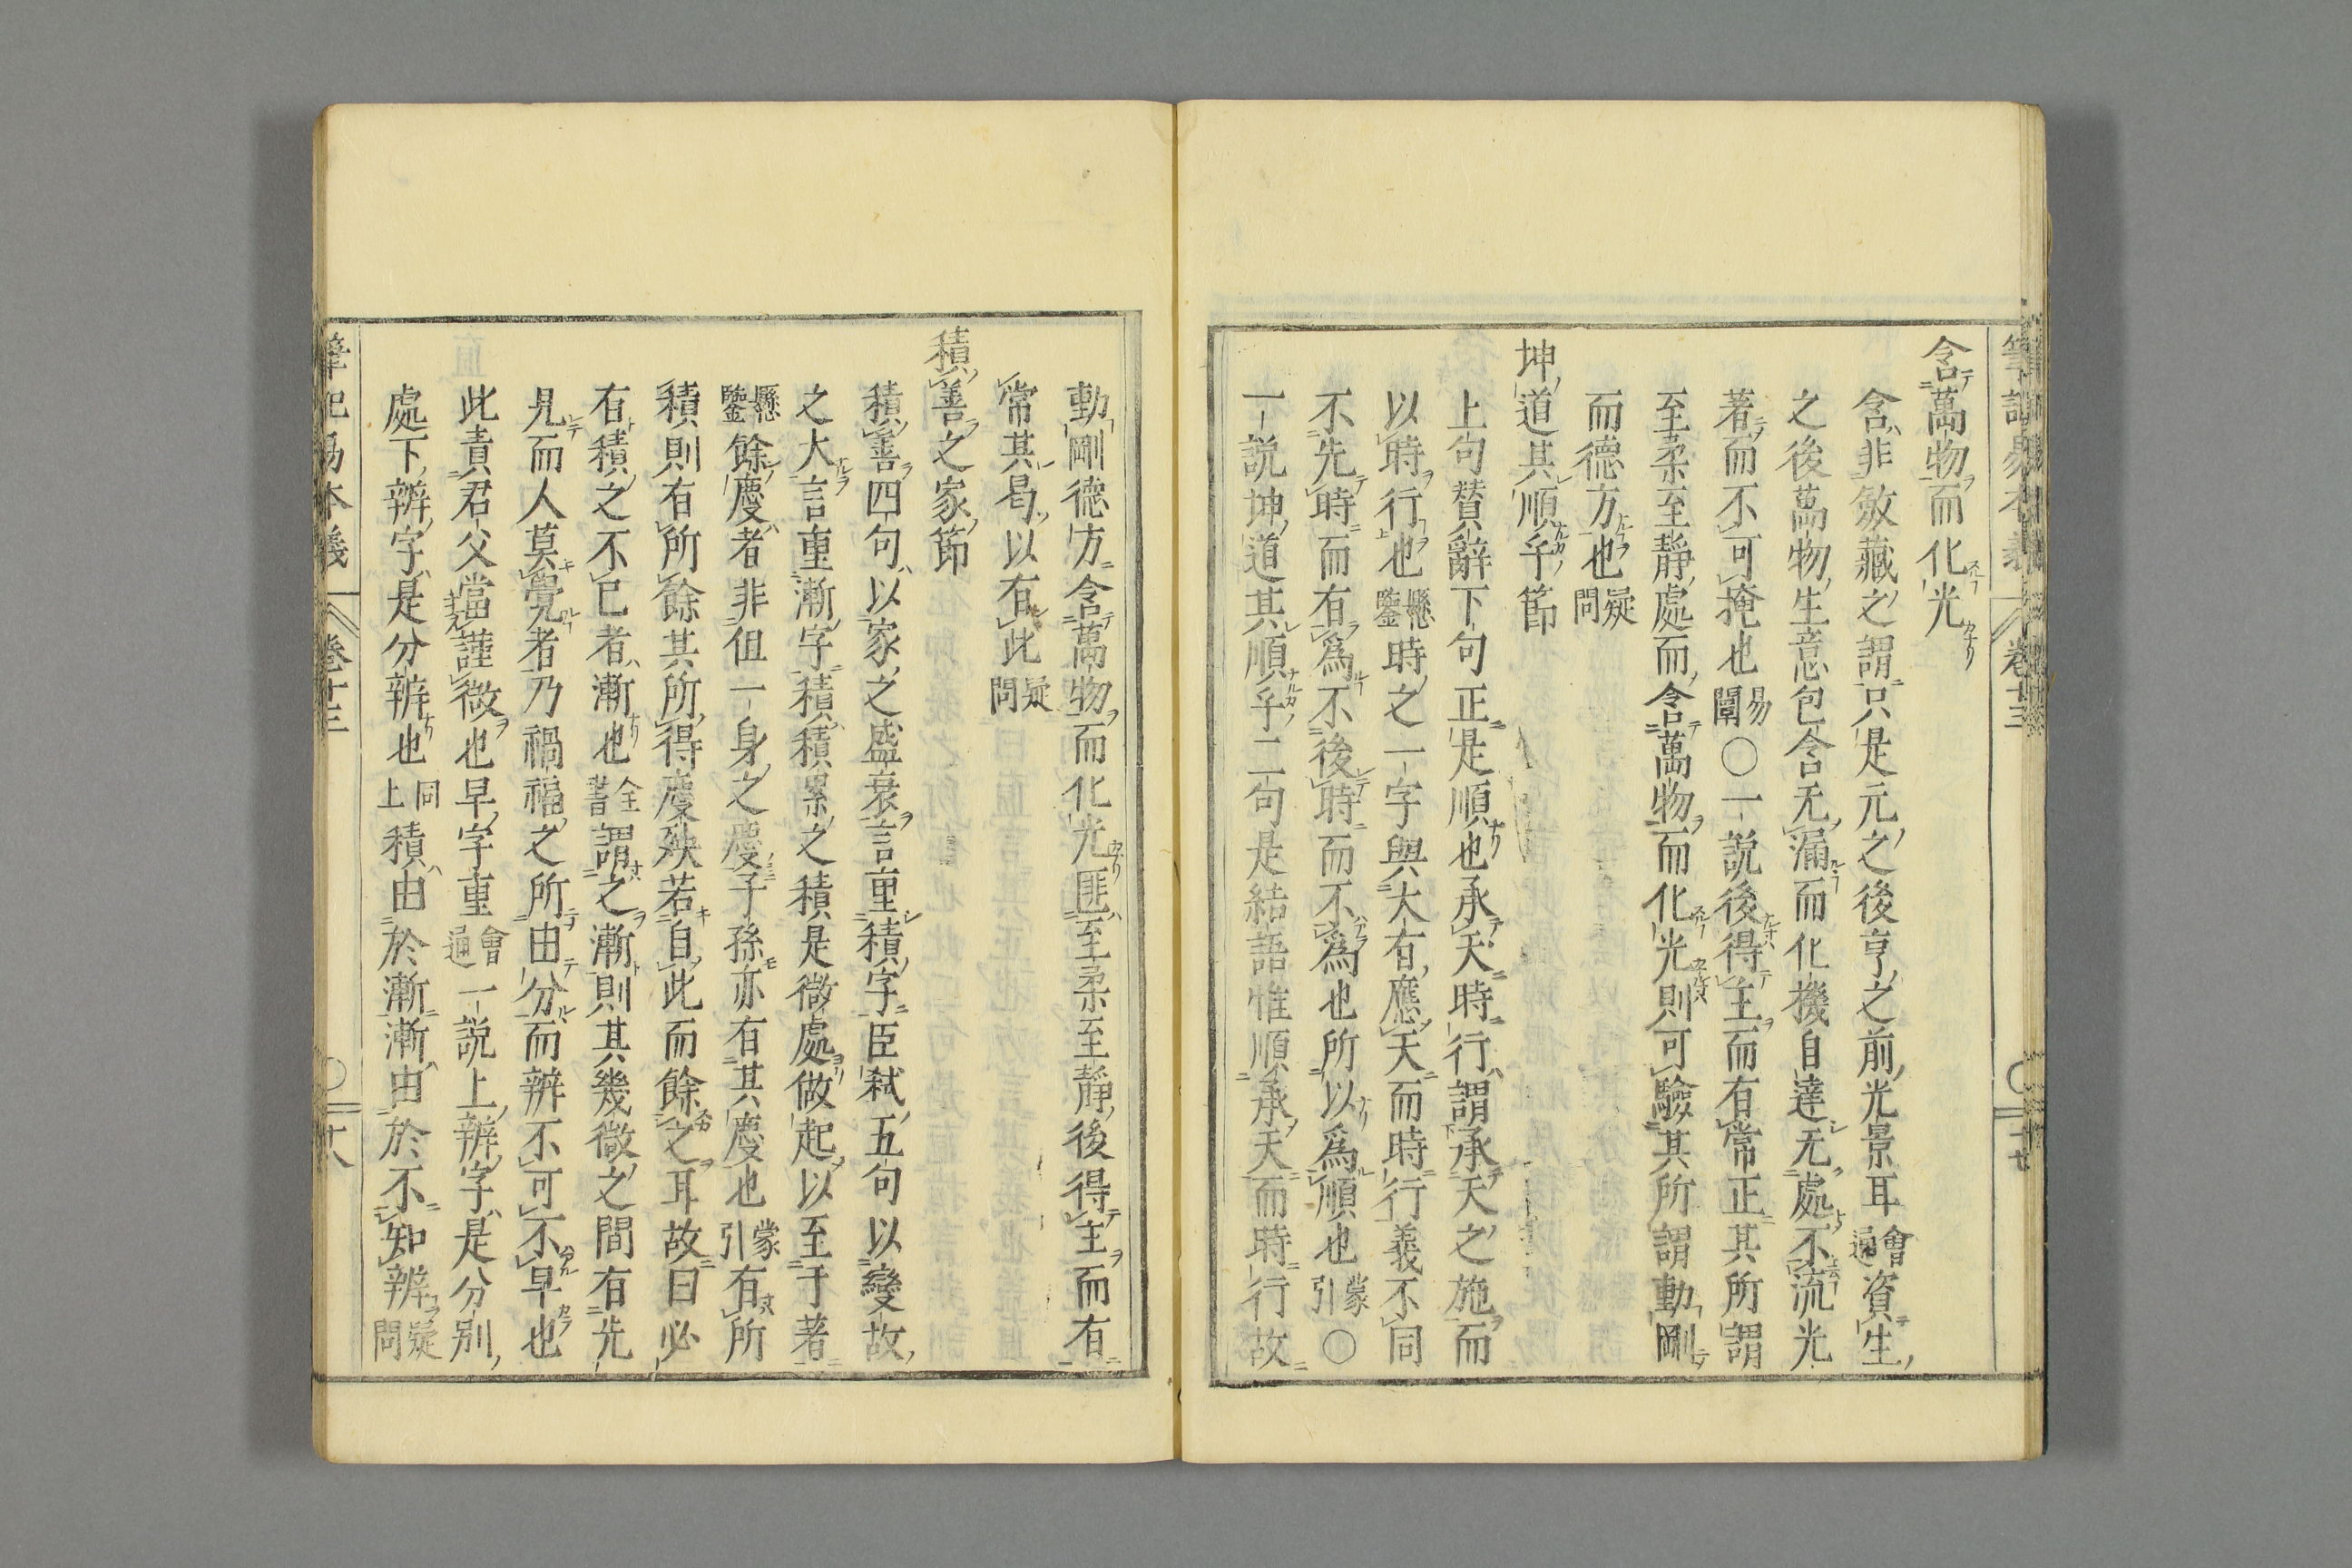 含萬物而化光
含非斂藏之謂只是元之後亨之前光景耳會通資生
之後萬物生意包含无漏而化機自達无處不流光
著而不可掩也易闡〇一說後得主而有常正其所謂
至柔至靜處而含萬物而化光則可驗其所謂動剛
而德方也疑問
坤道其順乎節
上句贊辭下句正是順也承天時行謂承天之施而
以時行也懸鑒時之一字與大有應天而時行義不同
不先時而有為不後時而不為也所以為順也蒙引〇
一說坤道其順乎二句是結語惟順承天而時行故
動剛德方含萬物而化光匪至柔至靜後得主而有
常其曷以有此疑問
積善之家節
積善四句以家之盛衰言重積字臣弒五句以變故
之大言重漸字積積累之積是微處做起以至于著
懸鑒餘慶者非但一身之慶子孫亦有其慶也蒙引有所
積則有所餘其所得慶殃若自此而餘之耳故曰必
有積之不已者漸也全書謂之漸則其幾微之間有先
見而人莫覺者乃禍福之所由分而辨不可不早也
此責君父當謹微也早字重會通一說上辨字是分別
處下辨字是分辨也同上積由於漸漸由於不知辨疑問
筆記易本義 卷十三 十八